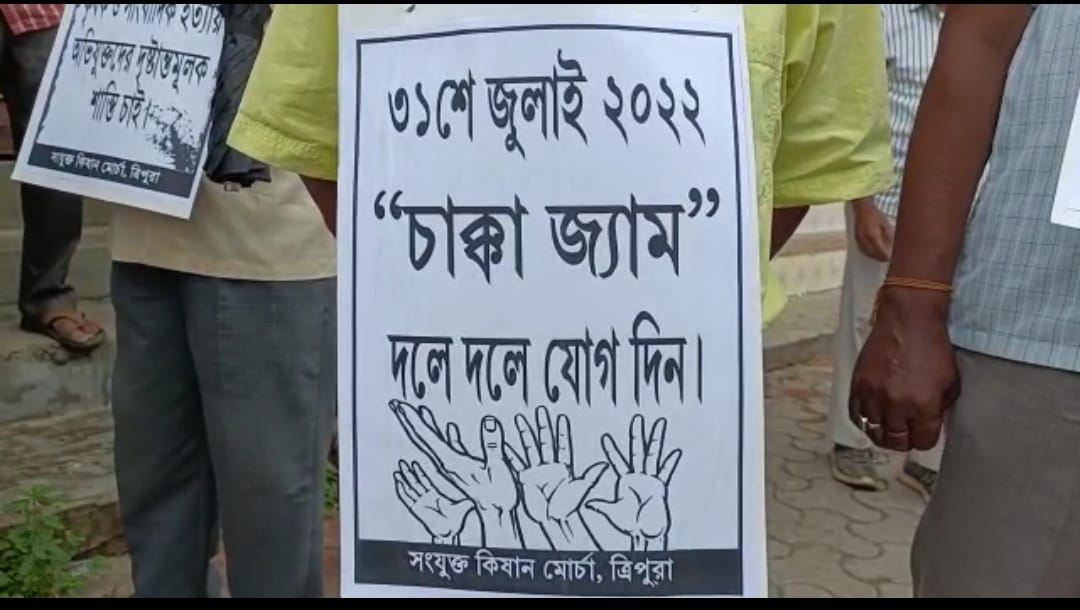 সাংবাদিক হত্যার
অভিযুক্তদের দৃষ্টান্তমূলক
শাস্তি চাই।
সংযুক্ত কিষান মোর্চা, ত্রিপুরা
৩১শে জুলাই ২০২২
“চাক্কা জ্যাম”
দলে দলে যোগ দিন।
সংযুক্ত কিষান মোর্চা, ত্রিপুরা